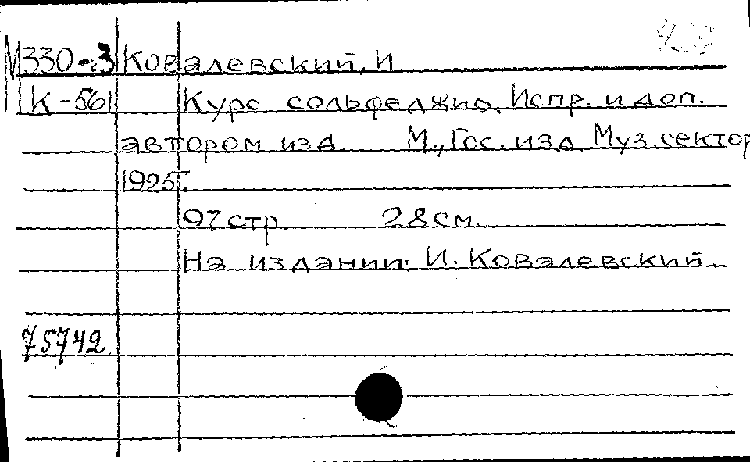 М330-3 Ковалевский, И
К-56 Курс сольфеджио. Испр. и доп.
автором изд. М., Гос. изд. Муз. сектор
1925г.
97 стр. 28 см.
На издании: И. Ковалевский.
75742